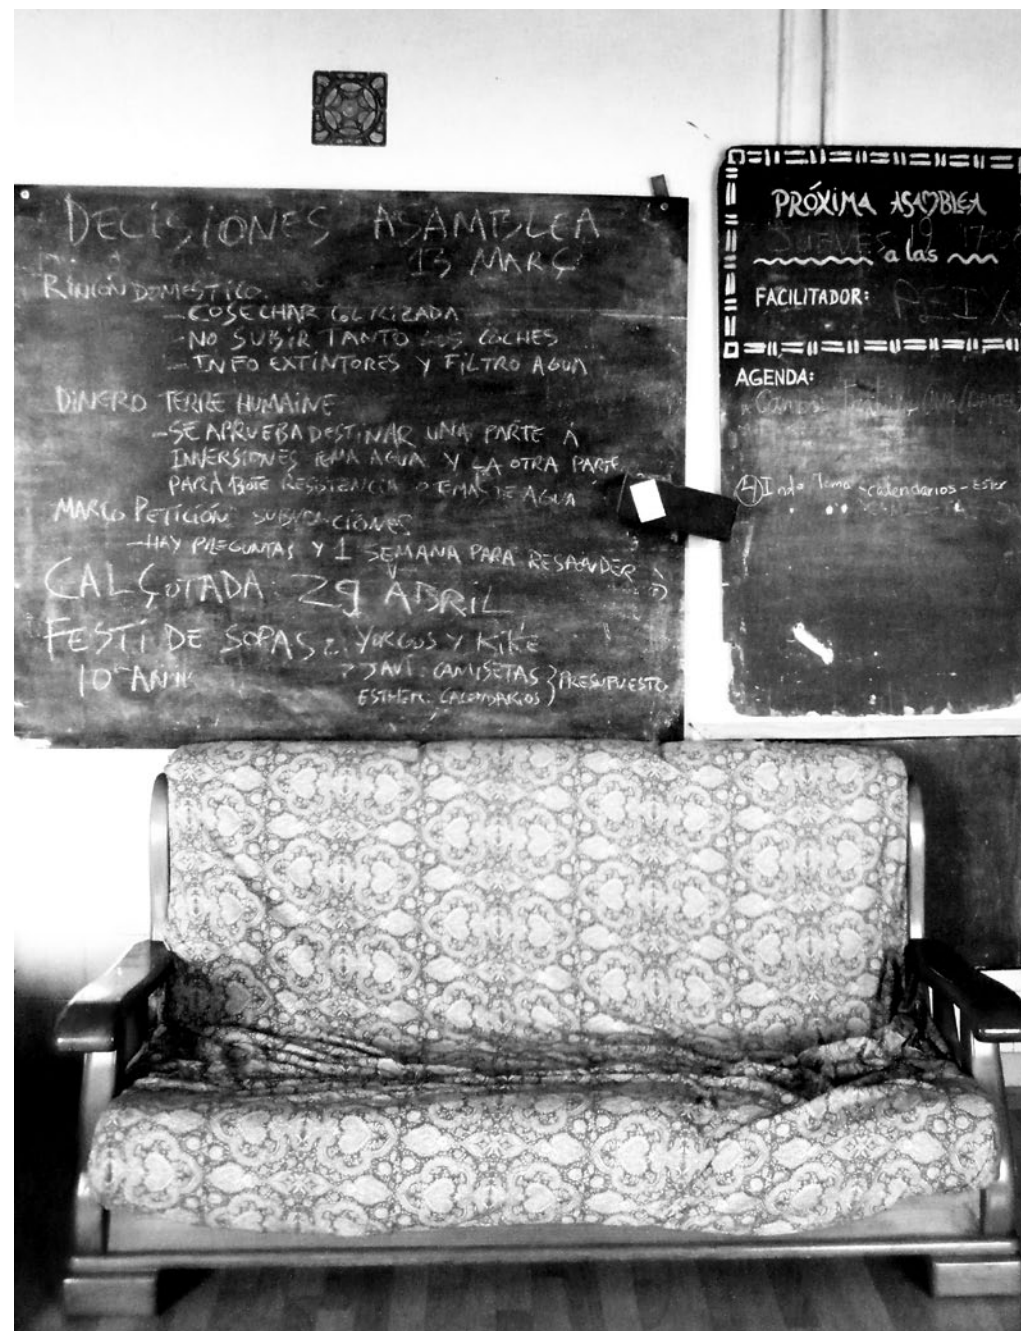 DECISIONES ASAMBLEA
13 MARÇ
RINCÓN DOMESTICO
- COSECHAR
- NO SUBIR TANTO LOS COCHES
- INFO EXTINTORES Y FILTRO AGUA
DINERO TERRE HUMAINE
- SE APRUEBA DESTINAR UNA PARTE A
INVERSIONES TEMA AGUA Y LA OTRA PARTE
PARA BOTE RESISTENCIA O TEMAS DE AGUA
MARCO PETICIÓN SUBVENCIONES
- HAY PREGUNTAS Y 1 SEMANA PARA RESPONDER
CALÇOTADA 29 ABRIL
FESTI DE SOPAS: YORGOS Y KIKE
10º ANNI
> JAVI: CAMISETAS } PRESUPUESTO
ESTHER: CALENDARIOS
PRÓXIMA ASAMBLEA
JUEVES 19 a las
FACILITADOR:
AGENDA:
④ Info Tema calendarios - Ester